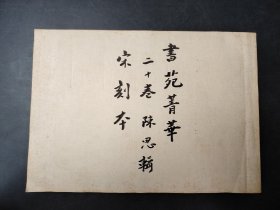 書苑菁華
二十卷 陳思輯
宋刻本